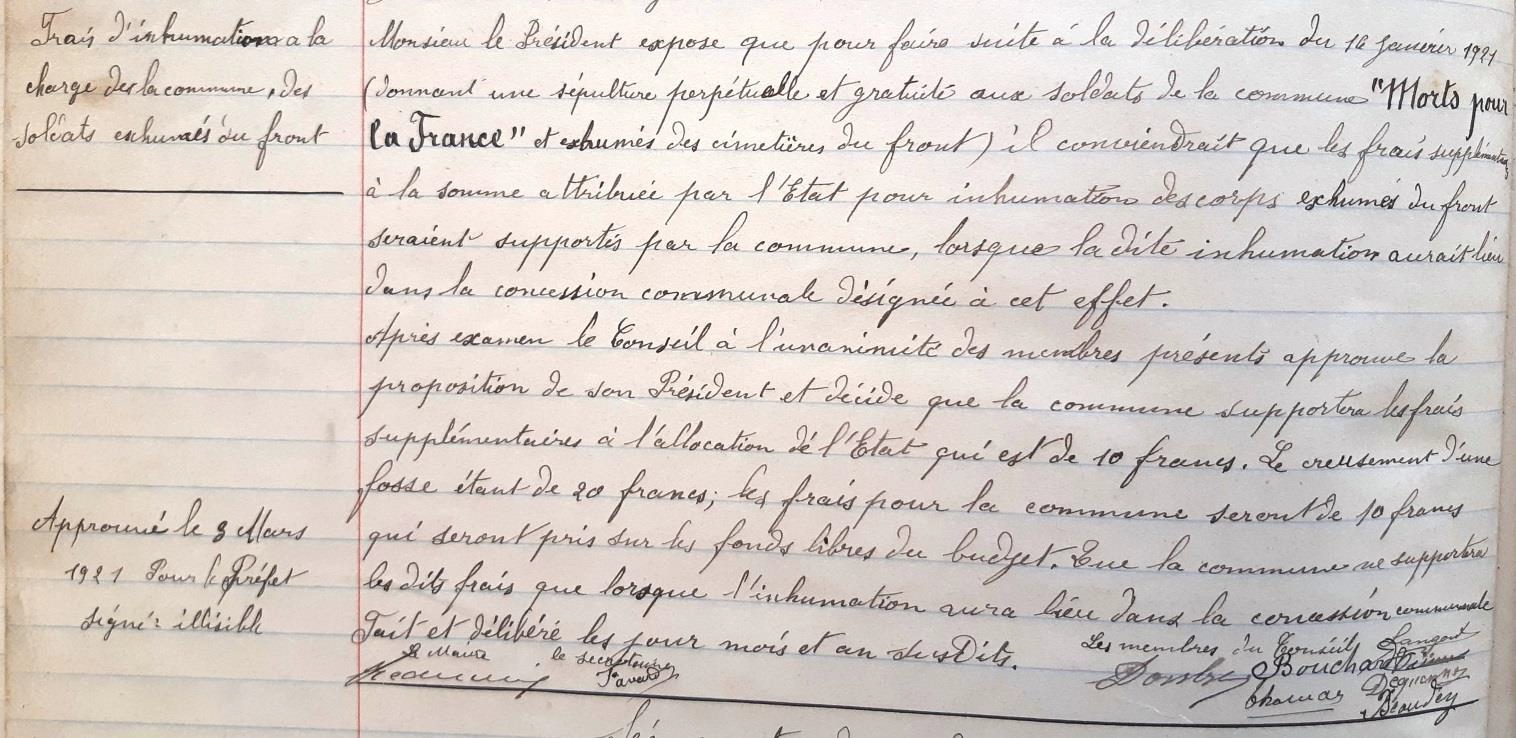 Frais d'inhumation a la
charge de la commune, des
soldats exhumés du front
Monsieur le Président expose que pour faire suite à la délibération du 16 janvier 1921
(donnant une sépulture perpétuelle et gratuite aux soldats de la commune "Morts pour
la France" et exhumés des cimetières du front) il conviendrait que les frais supplémentaires
à la somme attribuée par l'Etat pour inhumation des corps exhumés du front
seraient supportés par la commune, lorsque la dite inhumation aurait lieu
dans la concession communale désignée à cet effet.
Après examen le Conseil à l'unanimité des membres présents approuve la
proposition de son Président et décide que la commune supportera les frais
supplémentaires à l'allocation de l'Etat qui est de 10 francs. Le creusement d'une
fosse étant de 20 francs; les frais pour la commune seront de 10 francs
qui seront pris sur les fonds libres du budget. Que la commune ne supportera
les dits frais que lorsque l'inhumation aura lieu dans la concession communale
Fait et délibéré les jour mois et an susdits.
Approuvé le 3 Mars
1921 Pour le Préfet
signé: illisible
Le Maire
le secrétaire
Favard
Les membres du Conseil
Bouchard
Chamas
Beaudey